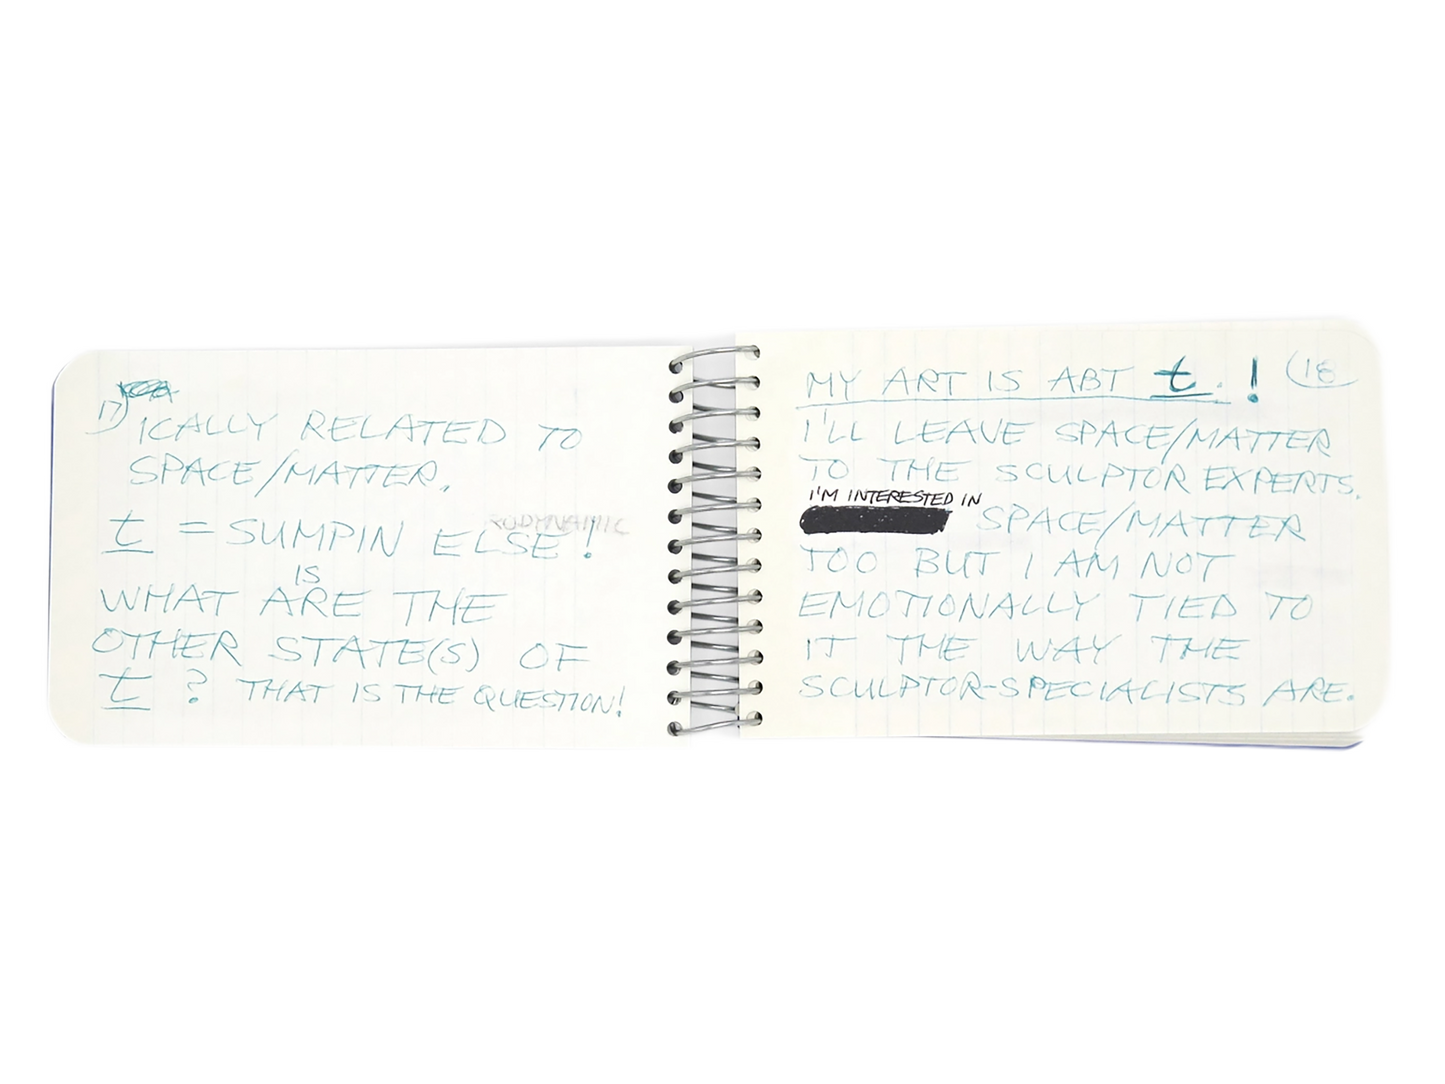 17)
ICALLY RELATED TO
SPACE/MATTER.
t = SUMPIN ELSE!
IS
WHAT ARE THE
OTHER STATE(S) OF
t ? THAT IS THE QUESTION!
(18
MY ART IS ABT t. !
I'LL LEAVE SPACE/MATTER
TO THE SCULPTOR EXPERTS.
I'M INTERESTED IN
SPACE/MATTER
TOO BUT I AM NOT
EMOTIONALLY TIED TO
IT THE WAY THE
SCULPTOR-SPECIALISTS ARE.